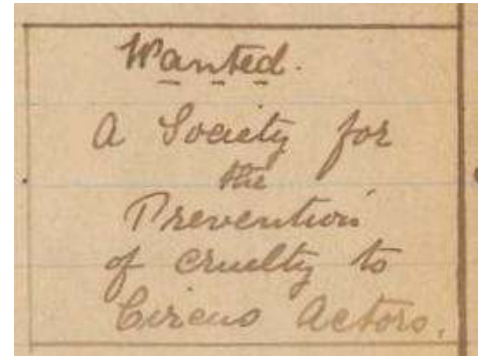 Wanted.
A Society for
the
Prevention
of Cruelty to
Circus Actors.